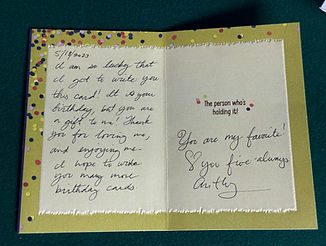 5/14/2023
I am so lucky that
I got to write you
this card! It is your
birthday, but you are
a gift to me! Thank
you for loving me,
and enjoying me.
I hope to write
you many more
birthday cards.
The person who's
holding it!
You are my favorite!
♡ you five-always